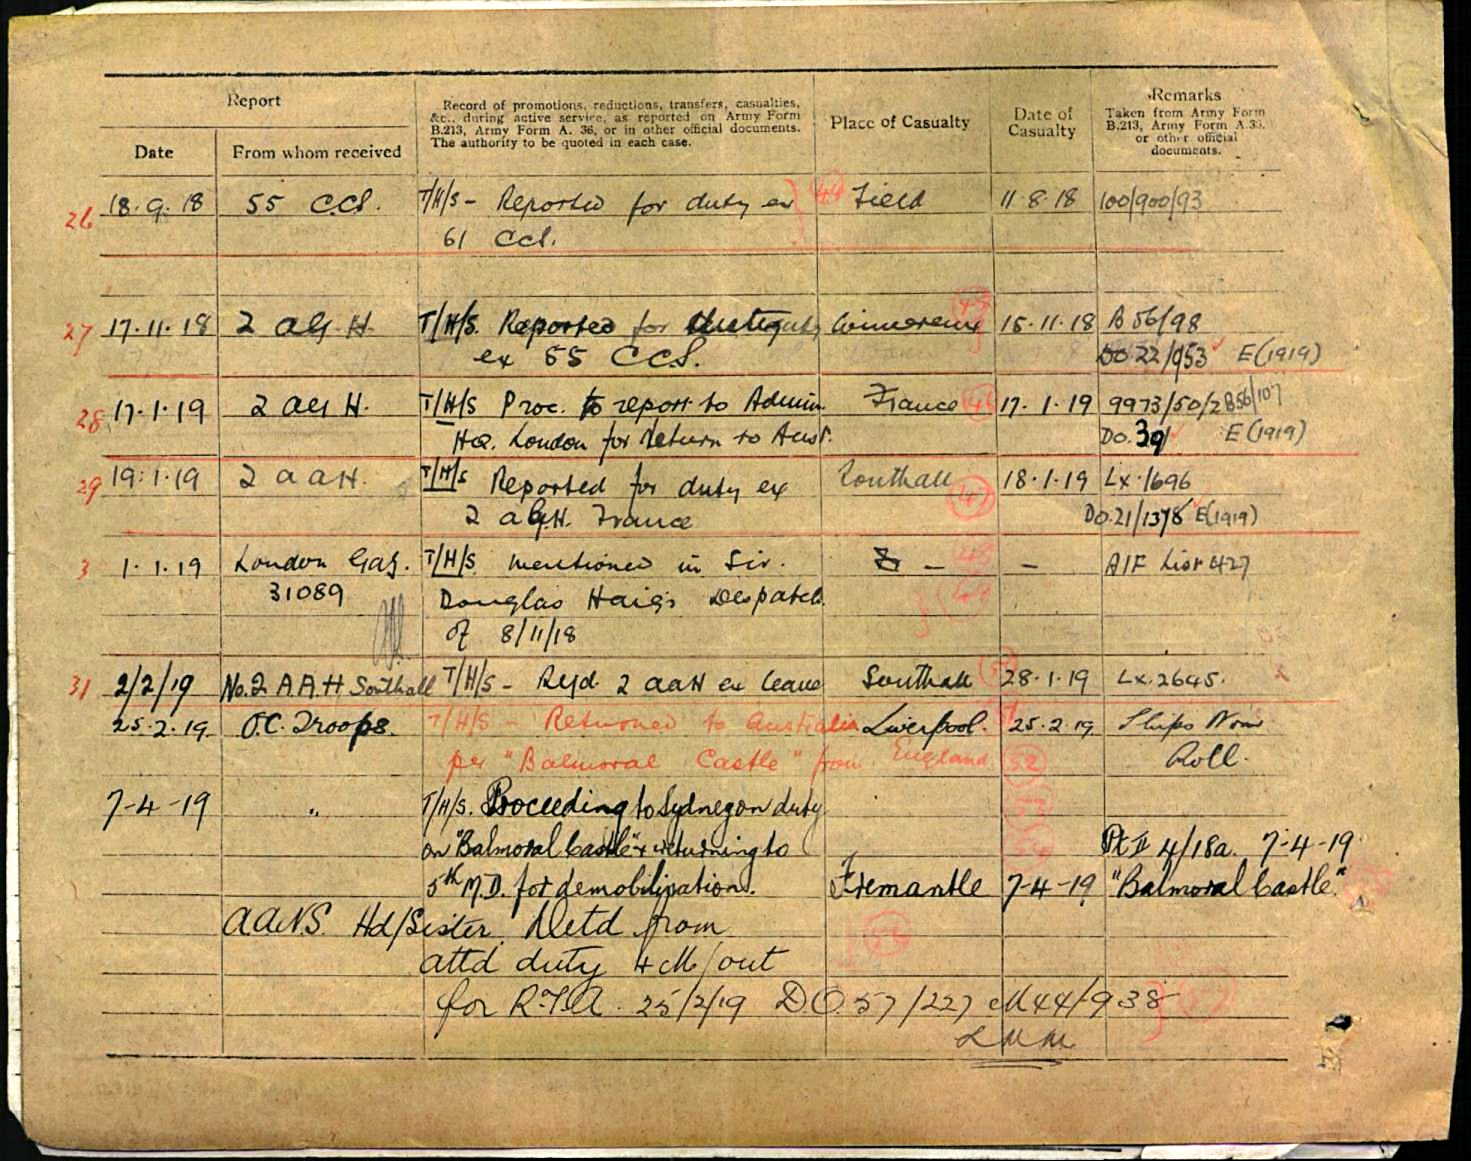 Report
Date
From whom received
Record of promotions, reductions, transfers, casualties,
&c., during active service, as reported on Army Form
B.213, Army Form A. 36, or in other official documents.
The authority to be quoted in each case.
Place of Casualty
Date of
Casualty
Remarks
Taken from Army Form
B.213, Army Form A.36,
or other official
documents.
26 18.9.18 55 CCS. T/H/S - Reported for duty ex Field 11.8.18 100/900/93
61 CCS.
27 17.11.18 2 AGH. T/H/S. Reported for duty Wimereux 15.11.18 B56/98
ex 55 CCS. DO 22/953 E(1919)
28 17.1.19 2 AGH. T/H/S Proc. to report to Admin. France 17.1.19 9973/50/2 B56/107
HQ. London for return to Aust. DO. 39 E(1919)
29 19.1.19 2 AAH. T/H/S Reported for duty ex Southall 18.1.19 Lx.1696
2 AGH. France DO.21/1378 E(1919)
3 1.1.19 London Gaz. T/H/S mentioned in Sir. - - AIF List 427
31089 Douglas Haig's Despatch
of 8/11/18
31 2/2/19 No.2 A.A.H Southall T/H/S - Rejd. 2 AAH ex leave Southall 28.1.19 Lx.2645.
25.2.19. O.C. Troops. T/H/S - Returned to Australia Liverpool. 25.2.19 Ships Nom
per "Balmoral Castle" from England 52 Roll.
7-4-19 " T/H/S. Proceeding to Sydney on duty
on "Balmoral Castle" & returning to Pt II 4/18a. 7-4-19.
5th M.D. for demobilisation. Fremantle 7-4-19 "Balmoral Castle."
A.A.N.S. Hd/Sister. Detd from
attd duty 4 M/out
for R.T.A. 25/2/19 D.O. 57/227 M44/938